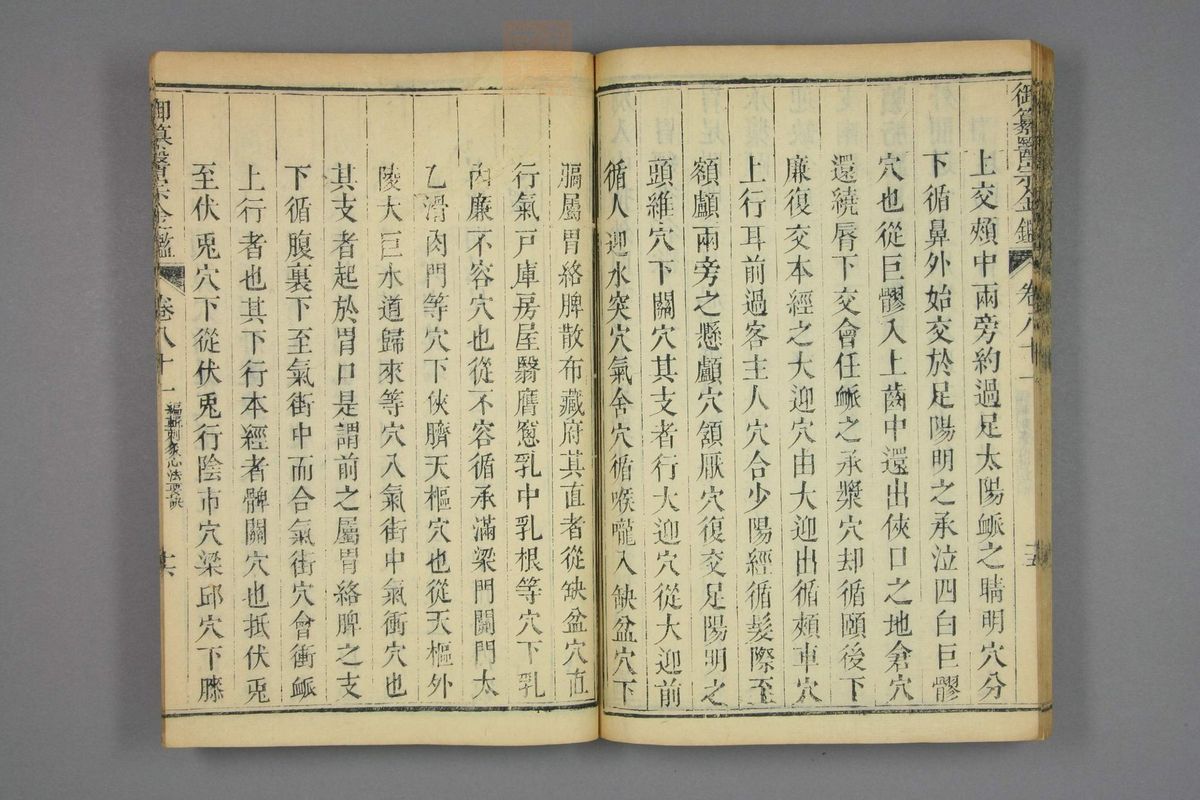 御纂醫宗金鑑 卷八十一
十五
上交頞中兩旁約過足太陽脈之睛明穴分
下循鼻外始交於足陽明之承泣四白巨髎
穴也從巨髎入上齒中還出俠口之地倉穴
還繞脣下交會任脈之承漿穴却循頤後下
廉復交本經之大迎穴由大迎出循頰車穴
上行耳前過客主人穴合少陽經循髮際至
額顱兩旁之懸顱穴頷厭穴復交足陽明之
頭維穴下關穴其支者行大迎穴從大迎前
循人迎水突穴氣舍穴循喉嚨入缺盆穴下
膈屬胃絡脾散布藏府其直者從缺盆穴直
行氣戶庫房屋翳膺窻乳中乳根等穴下乳
內廉不容穴也從不容循承滿梁門關門太
乙滑肉門等穴下俠臍天樞穴也從天樞外
陵大巨水道歸來等穴入氣街中氣衝穴也
其支者起於胃口是謂前之屬胃絡脾之支
下循腹裏下至氣街中而合氣街穴會衝脈
上行者也其下行本經者髀關穴也抵伏兎
至伏兎穴下從伏兎行陰市穴梁邱穴下膝
御纂醫宗金鑑 卷八十一 編輯刺灸心法要訣